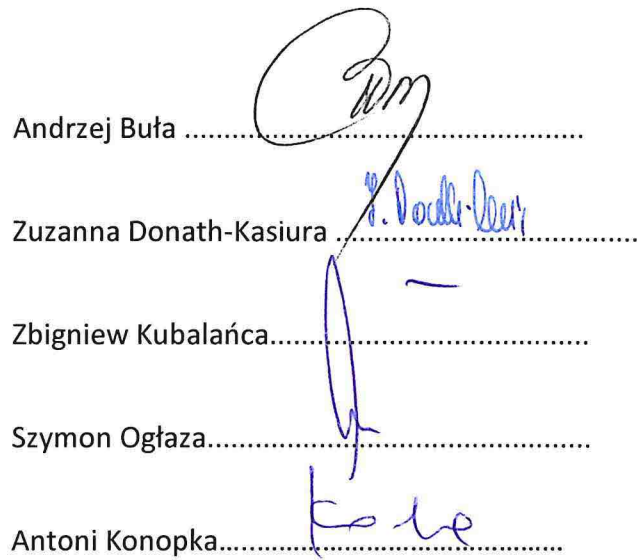 Andrzej Buła ............................................................
Zuzanna Donath-Kasiura .............................................
Zbigniew Kubalańca................................................
Szymon Ogłaza..........................................................
Antoni Konopka....................................................